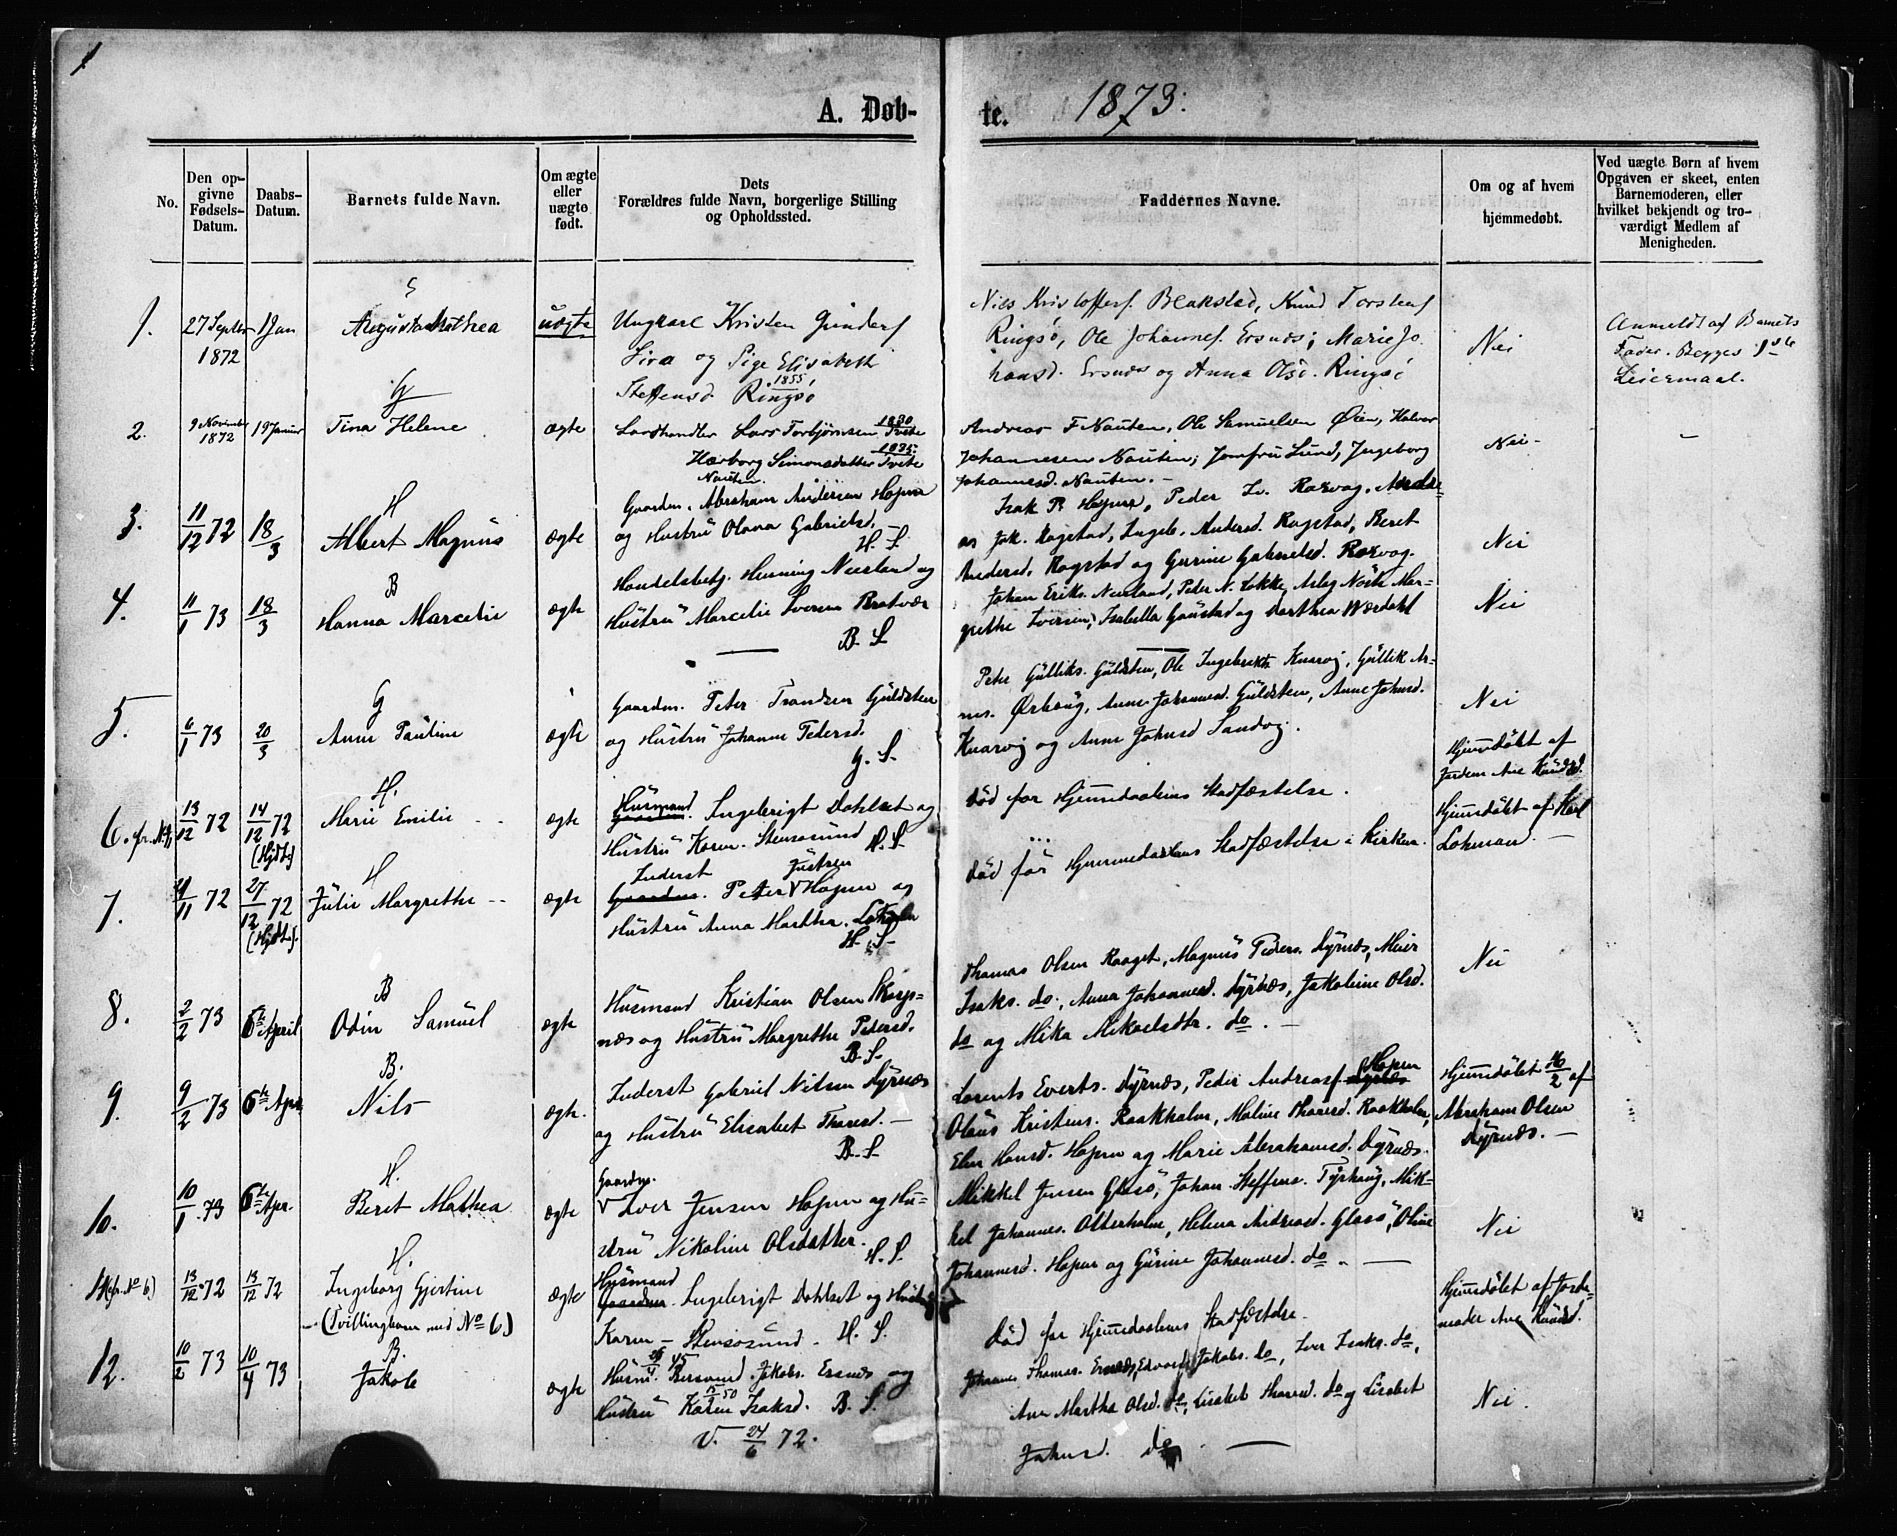 1
A. Døb-
te. 1873.
No.
Den op-
givne
Fødsels-
Datum.
Daabs-
Datum.
Barnets fulde Navn.
Om ægte
eller
uægte
født.
Dets
Forældres fulde Navn, borgerlige Stilling
og Opholdssted.
Faddernes Navne.
Om og af hvem
hjemmedøbt.
Ved uægte Børn af hvem
Opgaven er skeet, enten
Barnemoderen, eller
hvilket bekjendt og tro-
værdigt Medlem af
Menigheden.
1. 27 Septbr 1 Jan Augusta Mathea uægte Ungkarl Kristen Gundersf
1872
og Pige Elisabeth
Steffensd. Ringsø
1855
Nils Kristoffersf. Blakstad, Knud Torstensf
Ringsø, Ole Johannesf. Ersnæs; Marie Jo-
hansd. Ersnæs og Anna Olsd. Ringsø
Nei
Anmeldt af Barnets
Fader. Begges 1ste
Leiermaal.
G
2. 9 November 19 Januar Tina Helene ægte Landhandler Lars Torbjørnsen Tvete
1872
1830
1835
Simonsdatter Tvete
Nauten.
Andreas F Nauten, Ole Samuelsen Øien, Halvor
Johannesen Nauten; Jomfru Lund, Ingeborg
Johannesd. Nauten. -
Nei -
H
3. 11/12 72 18/3 Albert Magnus ægte Gaardm. Abraham Andersen Hopen
og Hustru Olava Gabrielsd.
H. S.
Isak P. Hopen, Peder Iv. Rosvog, Andre-
as Jak. Rogstad, Ingeb. Andersd. Rogstad, Beret
Andersd. Rogstad og Gurine Gabrielsd. Rosvog.
Nei
B
4. 11/1 73 18/3 Hanna Marcelie ægte Handelsbetj. Henning Neerland og
Hustru Marcelie Iversen Bratvær
B. S.
Johan Eriks. Neerland, Peder N. Løkke, Mar-
grethe Iversen, Isabella Gaustad og Dorthea Værdahl
Nei
G
5. 6/1 73 20/3 Anne Pauline ægte Gaardm. Peter Trondsen Guldsten
og Hustru Johanne Pedersd.
G. S.
Peter Gulliks. Guldsten, Ole Ingebrikts. Knarvig, Gullik Ar-
nes. Ørhaug, Anne Johannesd. Guldsten, Anne Johnsd.
Knarvig og Anne Johnsd Sandvig.
Nei
H.
6. 13/12 72 14/12 72 Marie Emilie ægte Husmand Ingebrigt Dahlset og
(Hjdt.)
Hustru Karen. Stensøsund H. S.
Død før Hjemmedaabens Stadfæstelse.
Hjemdøbt af
Jordem Ane Knudsd.
H
7. 11 72 27/12 72 Julie Margrethe ægte Inderst Justsen
(Hjdt.)
Peter Hopen og
Hustru Anna Martha.
H. S.
Død før Hjemmedaabens Stadfæstelse i Kirken.
Hjemdøbt af
Lohman
B
8. 2/2 73 6te April Odin Samuel ægte Husmand Kristian Olsen Skarp-
næs og Hustru Margrethe Pedersd.
B. S.
Thomas Olsen Raaget, Magnus Peders. Dyrnæs, Meier
Isaks. do., Anna Johannesd. Dyrnæs, Jakobine Olsd.
do og Mika Mikaelsdtr. do. -
Nei
B.
9. 9/2 73 6te Apr. Nils ægte. Inderst Gabriel Nilsen Dyrnæs
og Hustru Elisabet Thoresd. -
B. S.
Lorents Everts. Dyrnæs, Peder Andreasf. Hopen
Olaus Kristens. Raakholm, Maline Thoresd. Raakholm,
Elen Hansd. Hopen og Marie Abrahamsd. Dyrnæs.
Hjemdøbt 16/2 af
Abraham Olsen
Dyrnæs. -
H.
10. 10/1 73 6te Apr. Beret Mathea ægte Gaardm.
Iver Jensen Hopen og Hu-
stru Nikoline Olsdatter.
H. S.
Mikkel Jensen Glasø, Johan Steffens. Tyrhaug, Mik-
kel Johannes. Otterholm, Helena Andreasd. Glasø, Oline
Johannesd. Hopen og Gurine Johannesd. do. -
Nei
H.
11 (fr. No 6) 13/12 72 13/12 72 Ingeborg Gjertine ægte Husmand
(Tvillingbarn med No 6)
Ingebrigt Dahlset og Hustru
Karen - Stensøsund. H. S.
Død før Hjemmedaabens Stadfæstelse.
Hjemdøbt af Jorde-
moder Ane Knudsd.
B.
12. 10/2 73 10/4 73 Jakob ægte Husm. Jakobs. Ersnæs og
Hustru Karen Isaksd. B. S.
V. 24/6 72.
Johannes Thomas. Ersnæs, Edvard Jakobs. do, Iver Isaks. do,
Ane Martha Olsd. do, Lisabet Thoresd. do og Lisabet
Johnsd. do -
Nei.